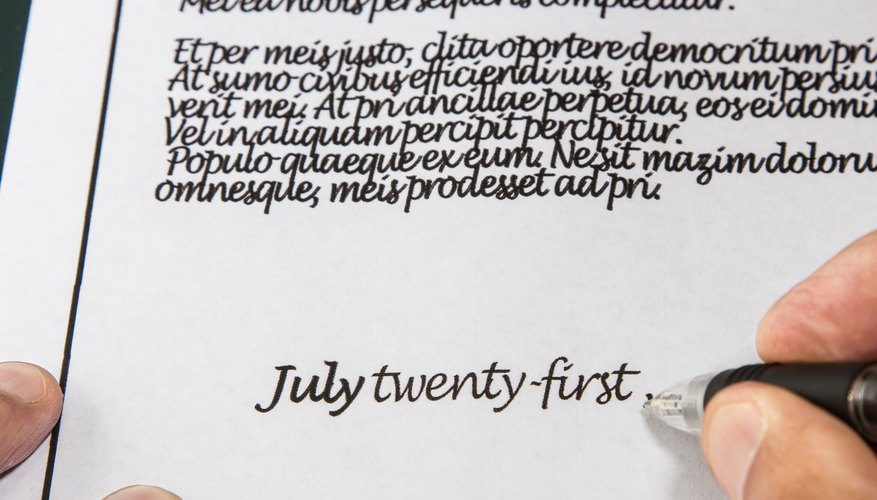 Mel ea nobis persequeris complectitur.
Et per meis justo, clita oportere democritum pri
At sumo civibus efficiendi ius, id novum persius
verit mei. At pri ancillae perpetua, eos ei domi
Vel in aliquam percipit percipitur.
Populo quaeque ex eum. Ne sit mazim doloru
omnesque, meis prodesset ad pri.
July twenty-first ,